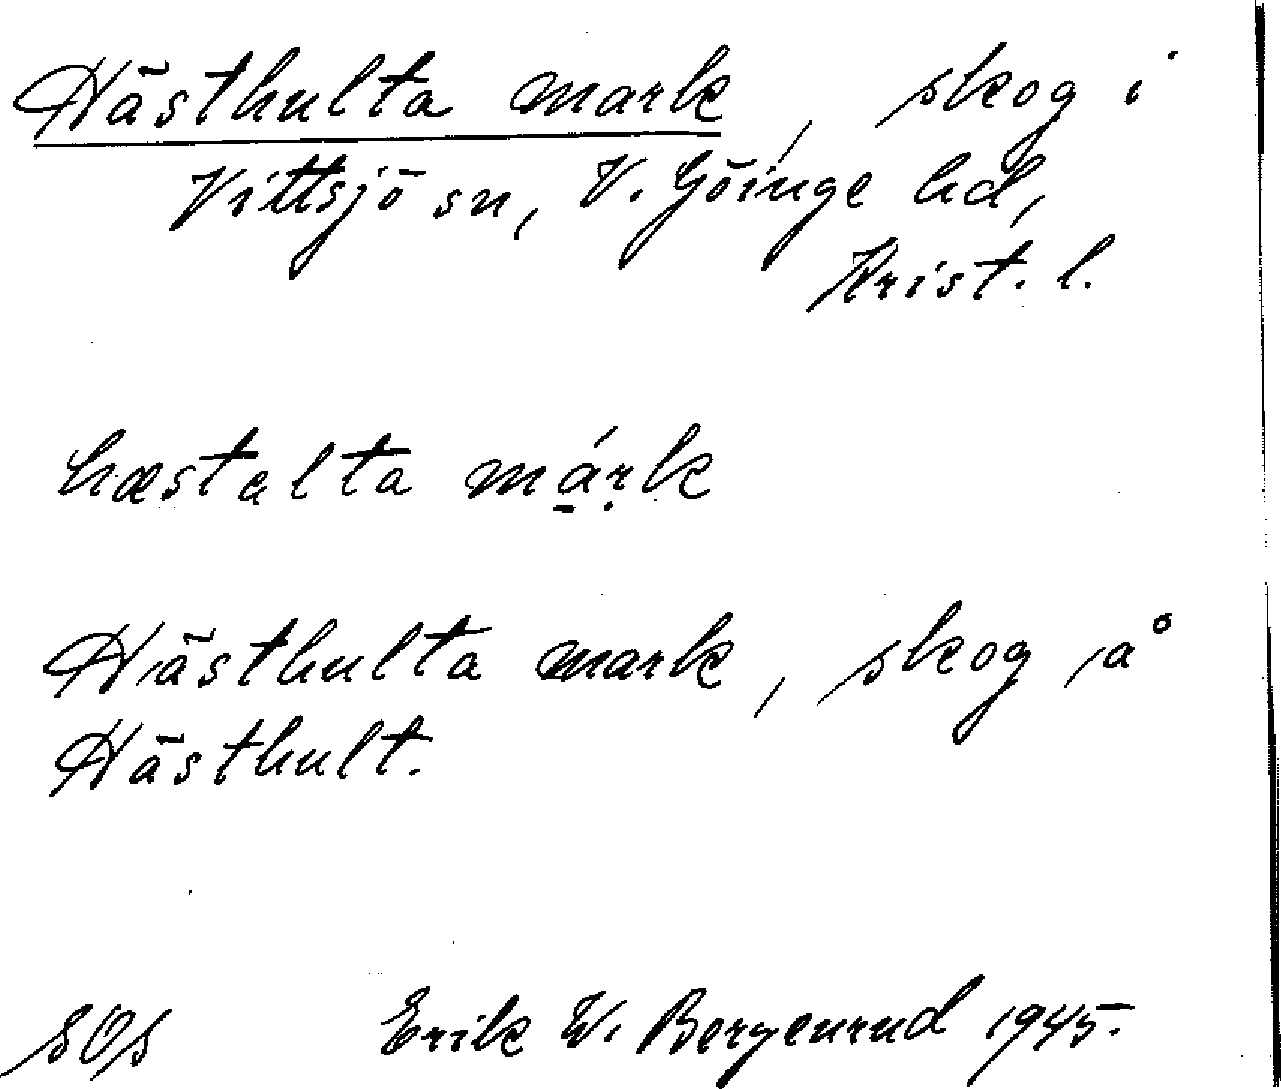 Hästhulta mark, skog i
Vittsjö sn, V. Göinge hd,
Krist. l.
hæstalta márk
Hästhulta mark, skog å
Hästhult.
SOS Erik W. Bergenrud 1945.